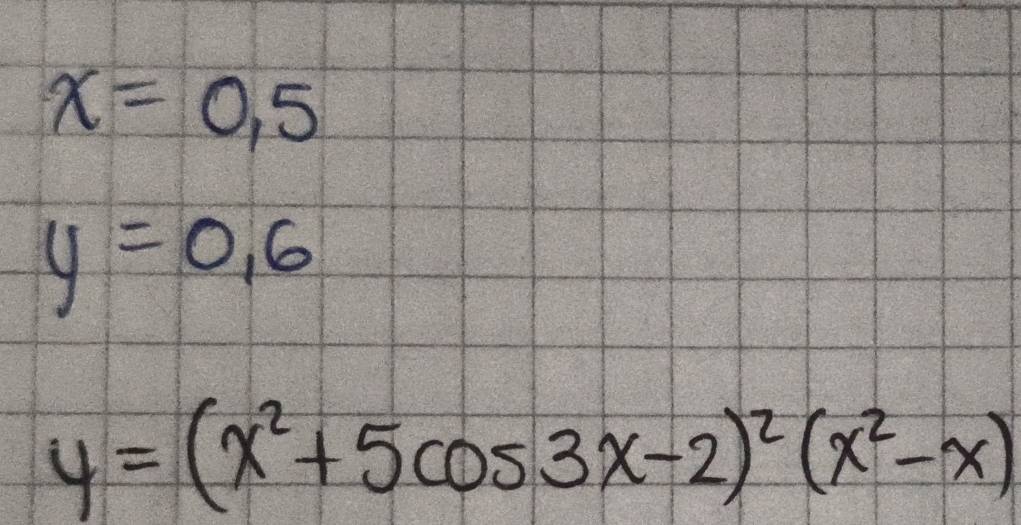 x = 0,5
y = 0,6
y = (x² + 5cos3x - 2)² (x² - x)